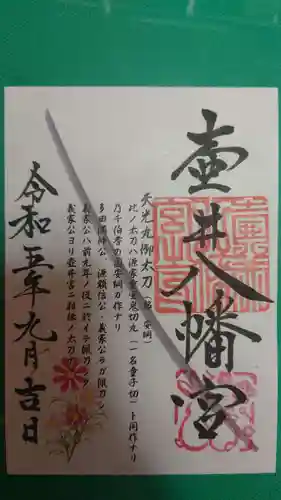 壺井八幡宮
天光丸御太刀(銘 安綱)
此ノ太刀ハ源家重宝鬼切丸(一名童子切)ト同作ナリ
乃チ伯耆の国安綱ガ作ナリ
多田満仲公、源頼信公・義家公ラガ佩刀シ
義家公ハ前九年ノ役ニ於イテ佩刀
義家公ヨリ壺井宮ニ相伝ノ太刀
令和五年九月吉日